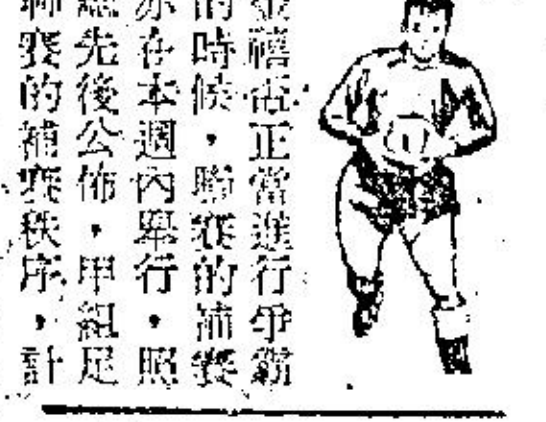 禧盃正當進行爭霸
的時候，聯賽的補賽
亦在本週內舉行，照
先後公佈，甲組足
聯賽的補賽秩序，計